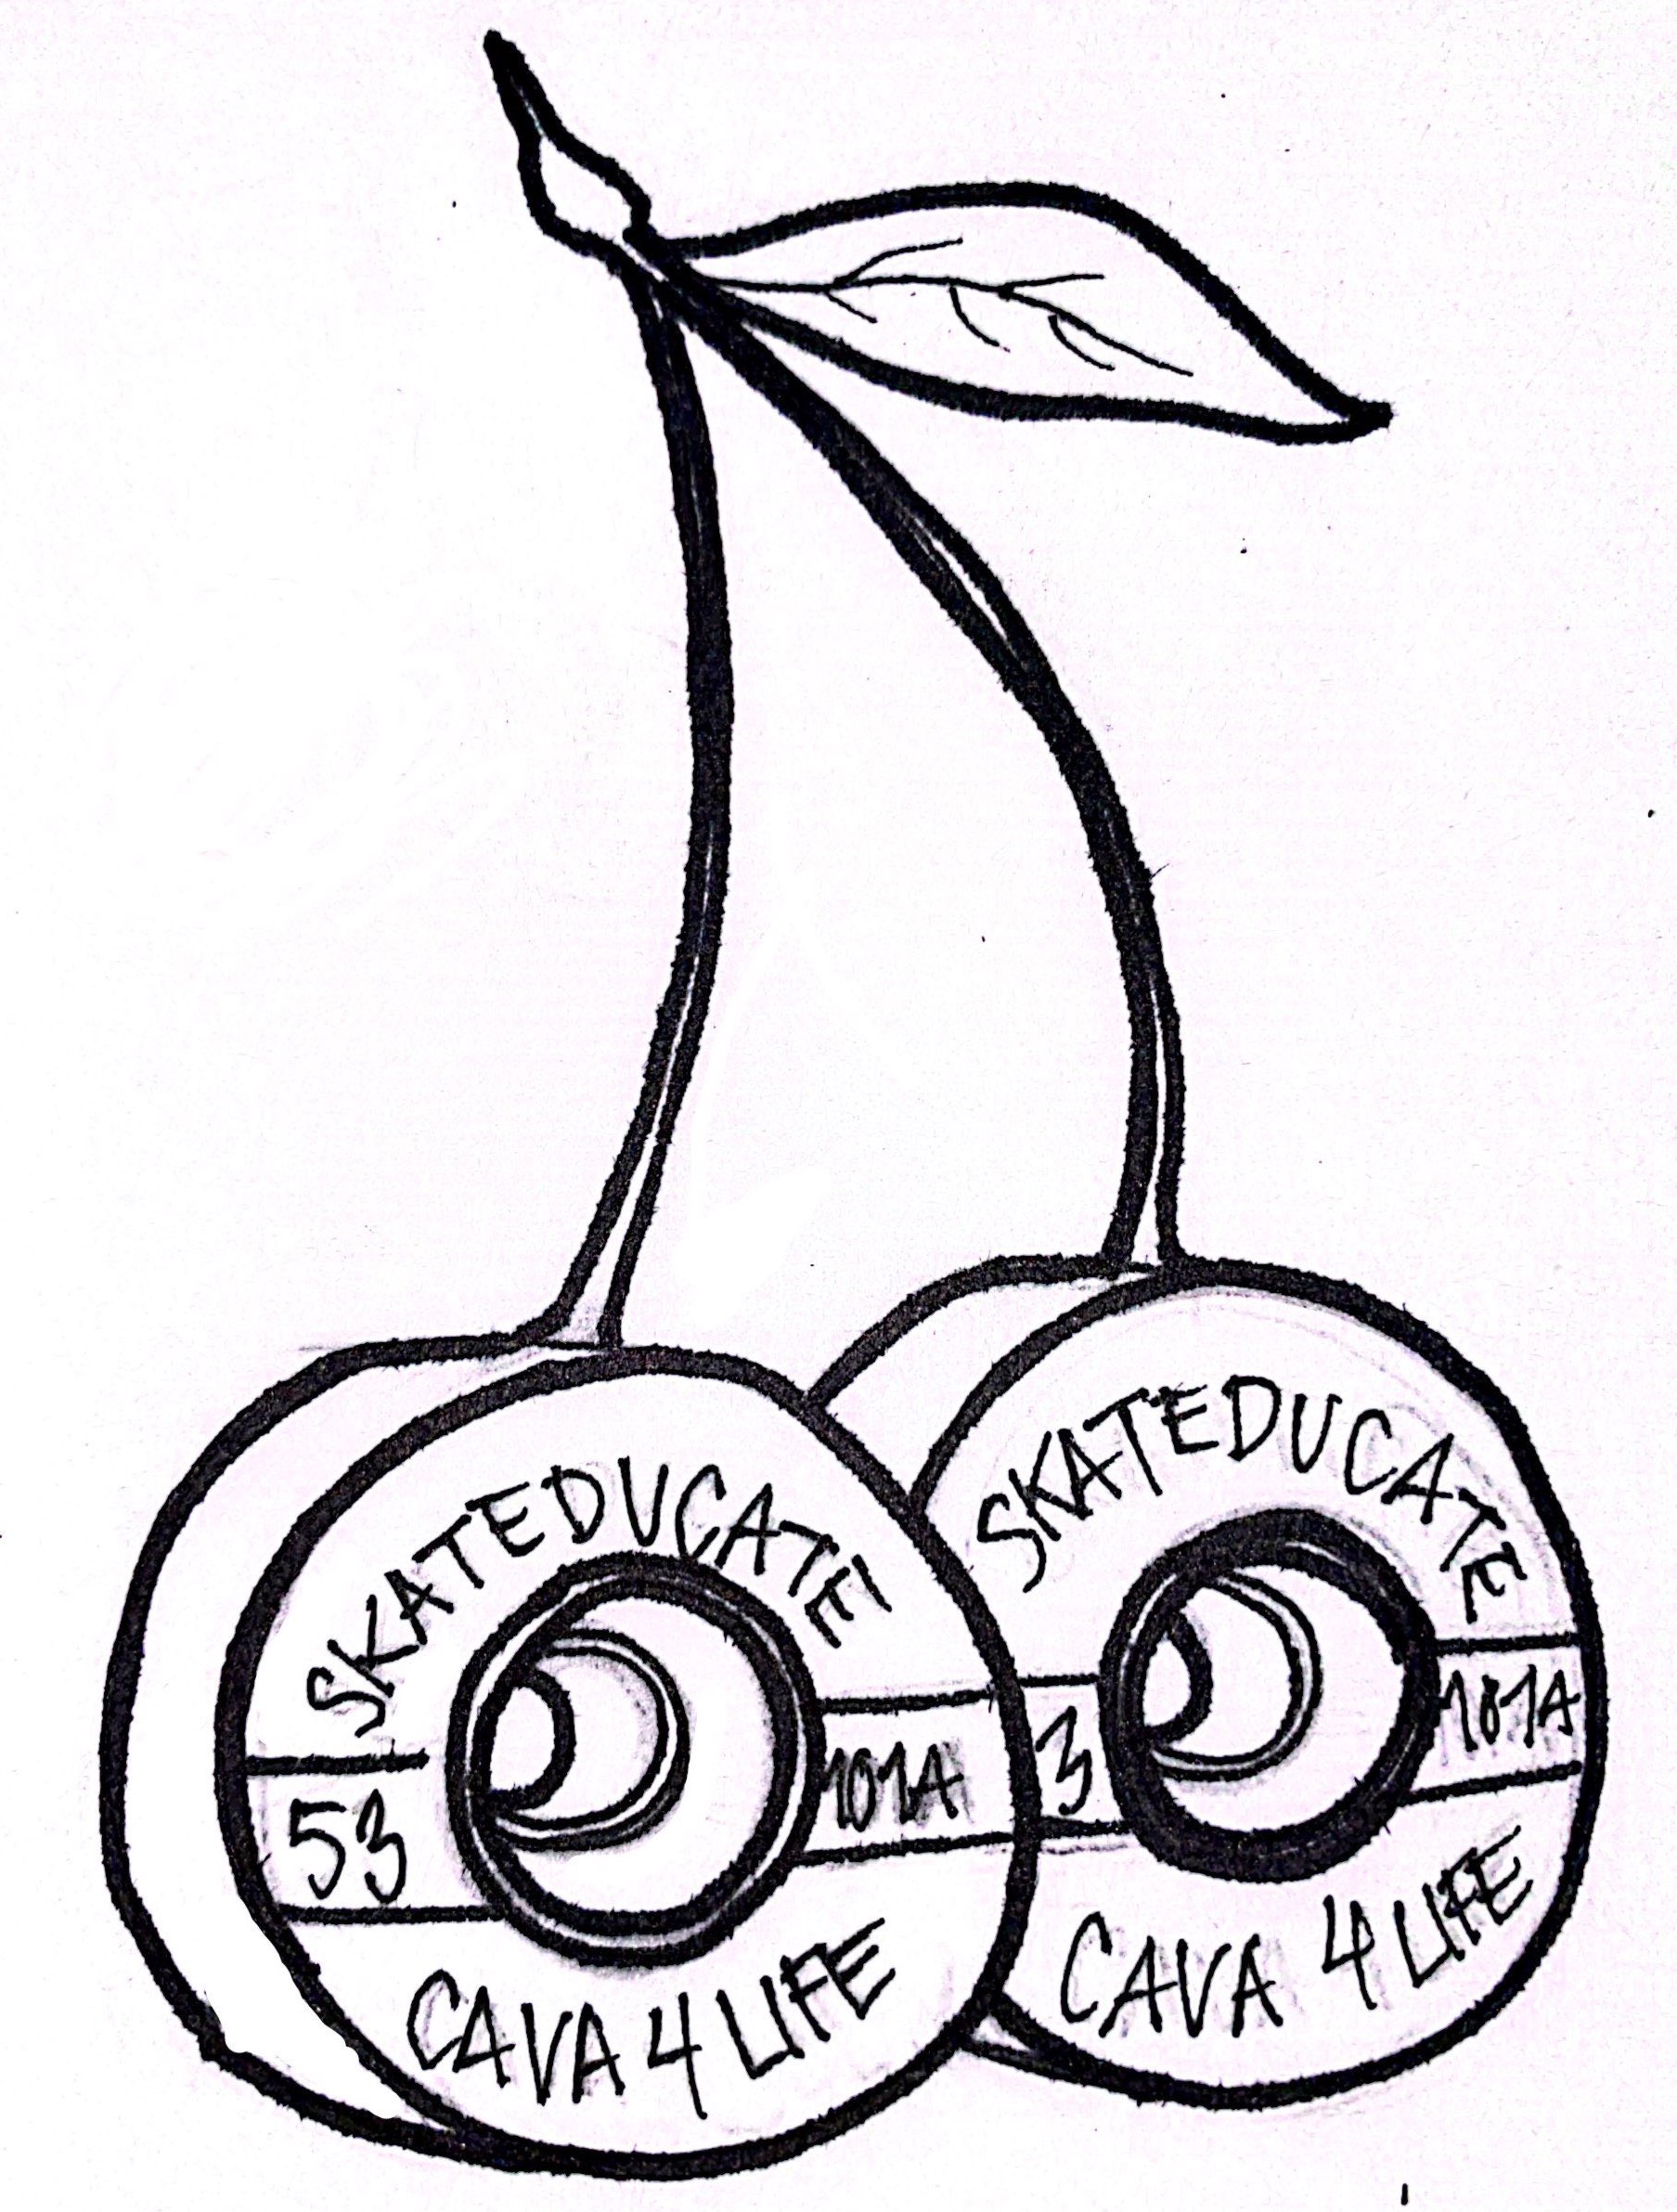 SKATEDUCATE
53 101A
CAVA 4 LIFE
SKATEDUCATE
3 101A
CAVA 4 LIFE